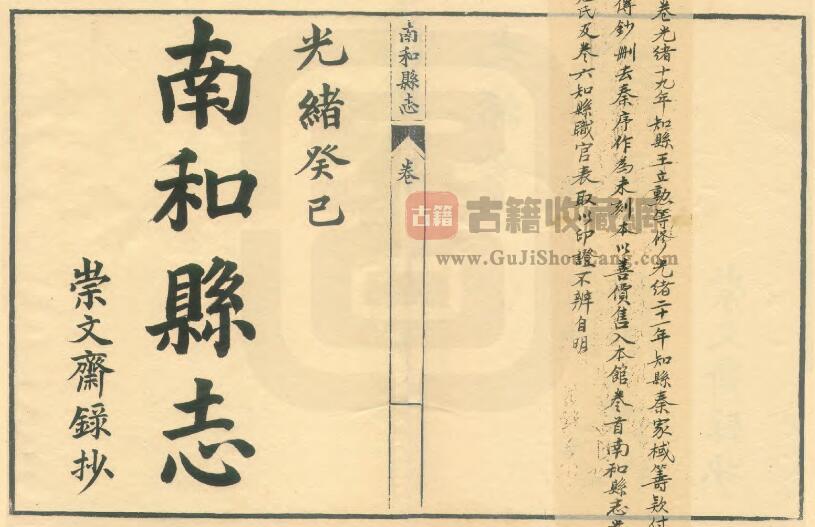 卷光緒十九年知縣王立勳等修光緒二十一年知縣秦家棫籌欵付
傳鈔刪去秦序作為未刻本以善價售入本館卷首南和縣志
氏及卷六知縣職官表取以印證不辨自明
南和縣志
卷
光緒癸巳
南和縣志
崇文齋錄抄
古籍
古籍收藏網
www.GuJiShouCang.com